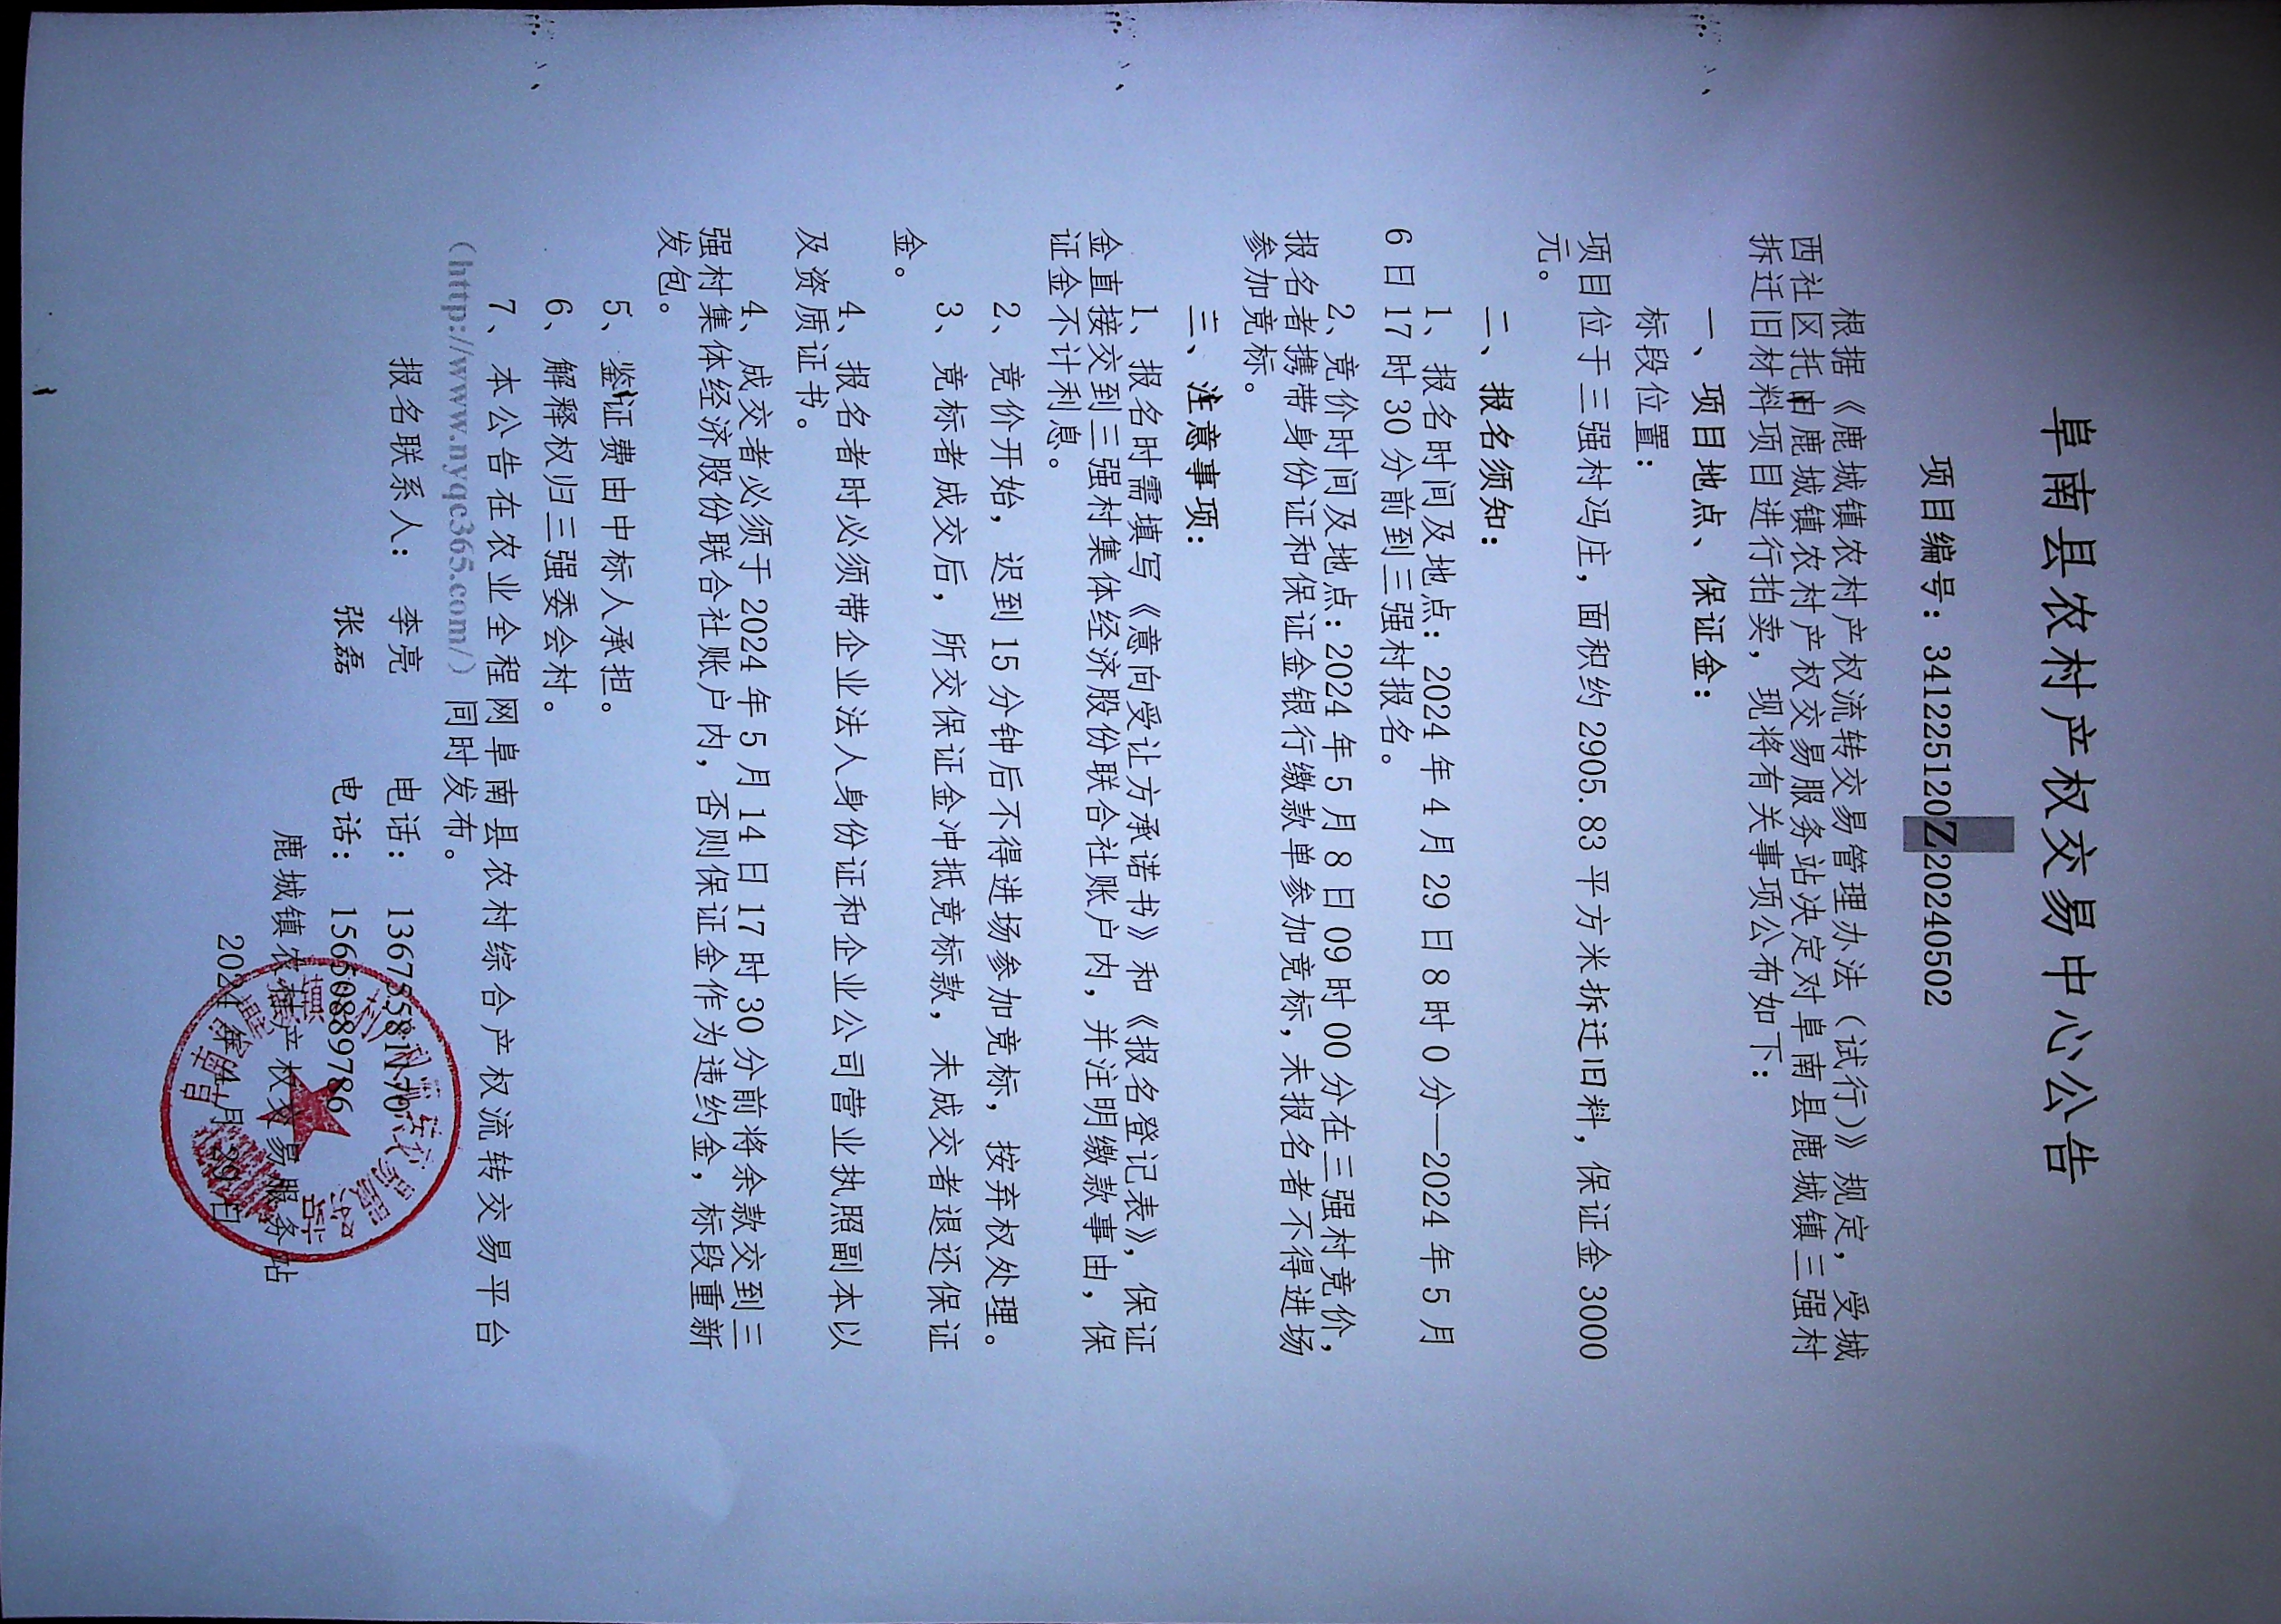 阜南县农村产权交易中心公告
项目编号：341225120Z20240502
根据《鹿城镇农村产权流转交易管理办法（试行）》规定，受城
西社区托由鹿城镇农村产权交易服务站决定对阜南县鹿城镇三强村
拆迁旧材料项目进行拍卖，现将有关事项公布如下：
一、项目地点、保证金：
标段位置：
项目位于三强村冯庄，面积约 2905.83 平方米拆迁旧料，保证金 3000
元。
二、报名须知：
1、报名时间及地点：2024 年 4 月 29 日 8 时 0 分—2024 年 5 月
6 日 17 时 30 分前到三强村报名。
2、竞价时间及地点：2024 年 5 月 8 日 09 时 00 分在三强村竞价，
报名者携带身份证和保证金银行缴款单参加竞标，未报名者不得进场
参加竞标。
三、注意事项：
1、报名时需填写《意向受让方承诺书》和《报名登记表》，保证
金直接交到三强村集体经济股份联合社账户内，并注明缴款事由，保
证金不计利息。
2、竞价开始，迟到 15 分钟后不得进场参加竞标，按弃权处理。
3、竞标者成交后，所交保证金冲抵竞标款，未成交者退还保证
金。
4、报名者时必须带企业法人身份证和企业公司营业执照副本以
及资质证书。
4、成交者必须于 2024 年 5 月 14 日 17 时 30 分前将余款交到三
强村集体经济股份联合社账户内，否则保证金作为违约金，标段重新
发包。
5、鉴证费由中标人承担。
6、解释权归三强委会村。
7、本公告在农业全程网阜南县农村综合产权流转交易平台
（http://www.nyqc365.com/）同时发布。
报名联系人： 李亮 电话： 13675581170
张磊 电话： 15660889786
鹿城镇农村产权交易服务站
2024 年 4 月 29 日